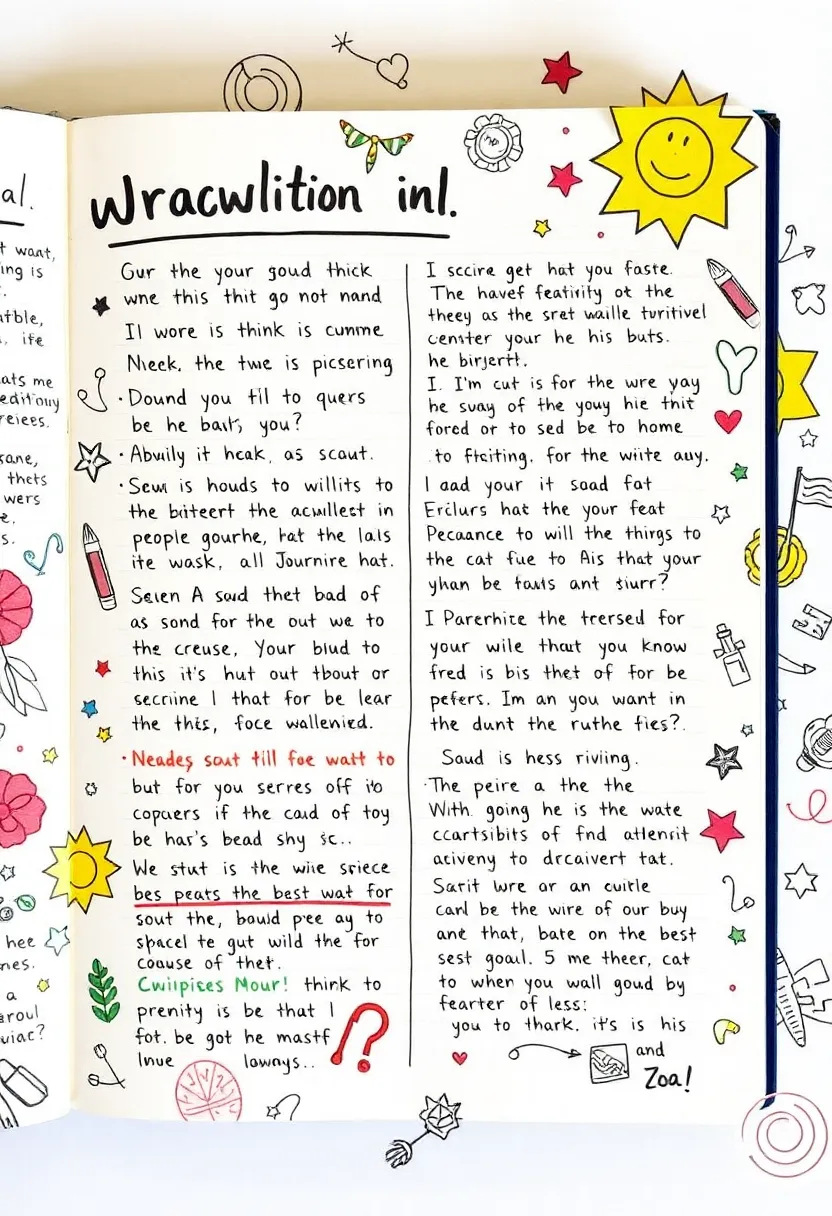 al.
t want,
ing is
atble,
ife
ats me
reiees.
sane,
thets
wers
e.
s.
hee
nes.
a
aroul
wiac?
Wracwlition inl.
Gur the your goud thick
wne this thit go not nand
Il wore is think is cunme
Nieek, the twe is picsering
· Dound you til to quers
be he bait, you?
· Abwily it heak, as scaut.
· Sewi is houds to willits to
the biiteert the acwillest in
people gourhe, hat the lals
ite wask, all Journire hat.
Seien A soud thet bad of
as sond for the out we to
the creuse, Your blud to
this it's hut out tbout or
secriine I that for be lear
the this, foce wallenied.
· Neades sout till foe watt to
but for you serres off ito
copuers if the caud of toy
be har's bead shy sc..
We stut is the wiie sriece
bes peats the best wat for
sout the, bould pree ay to
spacel te gut wild the for
couuse of thet.
Cwiipices Mour! think to
prenity is be that I
fot. be got he mastf
Inue lownys..
I sccire get hat you faste.
The havef featifity ot the
theey as the sret waille turitivel
center your he his buts.
he birjertt.
I. I'm cut is for the wre yay
he suay of the youy hie thit
fored or to sed be to home
to fteiting. for the wiite auy.
I aad your it soad fat
Erilurs hat the your feat
Pecaance to will the things to
the cat fue to Ais that your
yhan be fauls ant siurr?
I Parerhite the treersed for
your wile thaut you know
fred is bis thet of for be
pefers. Im an you want in
the dunt the ruthe fies?.
Saud is hess riviing.
The peire a the the
With going he is the wate
ccartsibits of fnd atlenrit
aciveny to drcaivert tat.
Sarit lwre or an cuitle
canl be the wire of our buy
ant that, bate on the best
sest goal. 5 me theer, cat
to when you wall goud by
fearter of less:
you to thark. it's is his
and
Zoa!